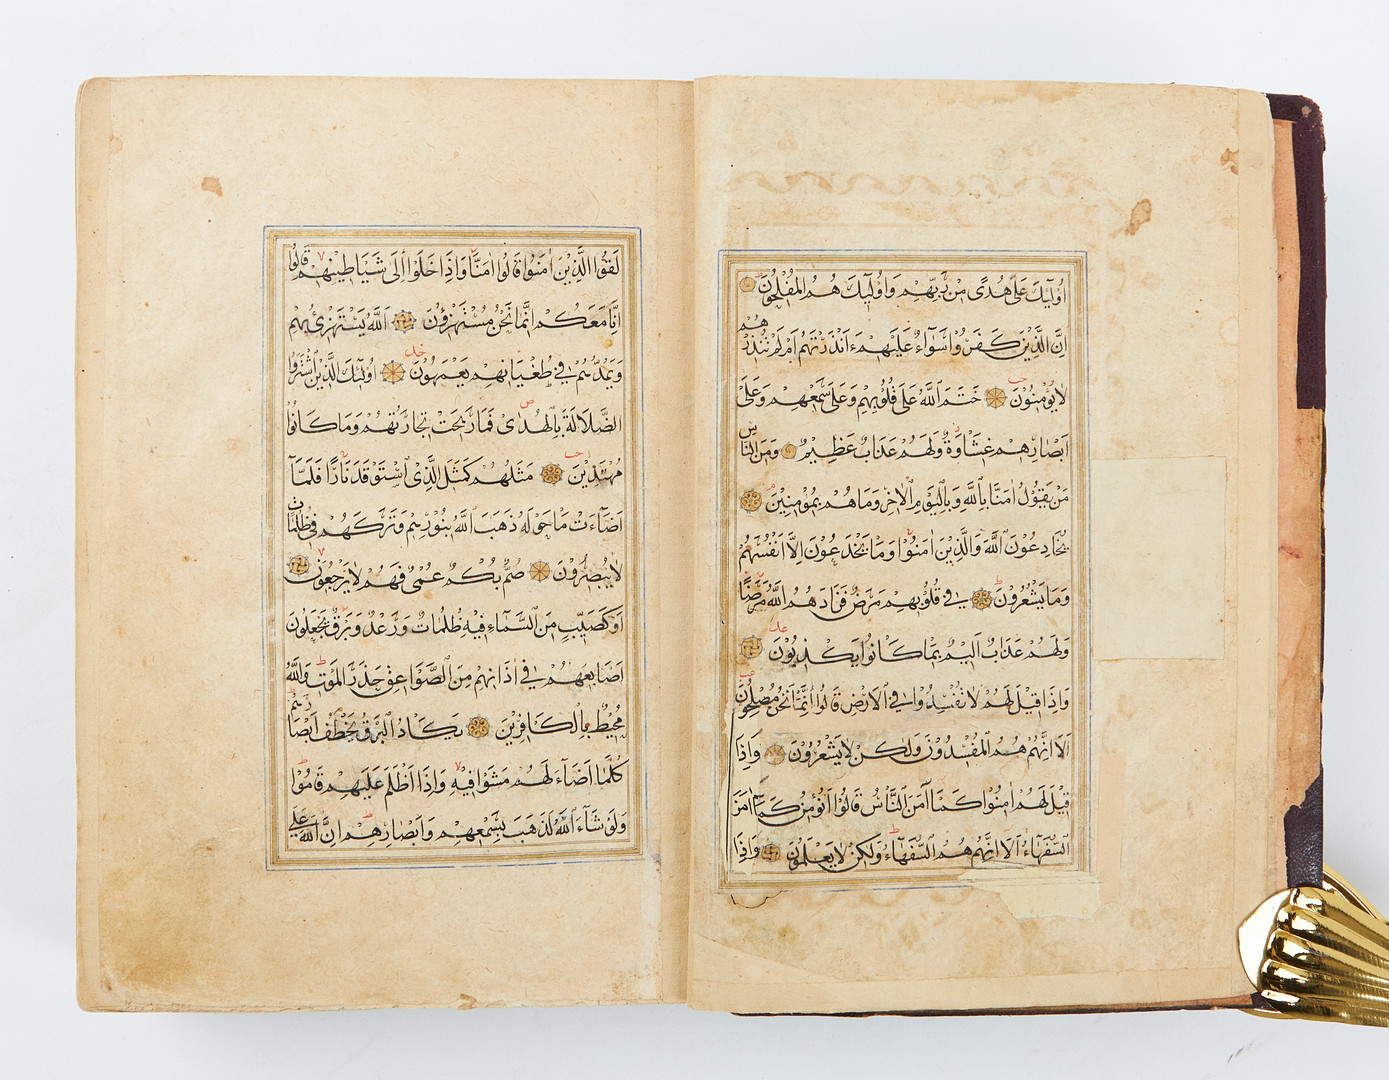 اُولٰٓئِكَ عَلٰى هُدًى مِنْ رَبِّهِمْ وَاُولٰٓئِكَ هُمُ الْمُفْلِحُونَ
اِنَّ الَّذِينَ كَفَرُوا سَوَآءٌ عَلَيْهِمْ ءَاَنْذَرْتَهُمْ اَمْ لَمْ تُنْذِرْهُمْ
لَا يُؤْمِنُونَ خَتَمَ اللّٰهُ عَلٰى قُلُوبِهِمْ وَعَلٰى سَمْعِهِمْ وَعَلٰى
اَبْصَارِهِمْ غِشَاوَةٌ وَلَهُمْ عَذَابٌ عَظِيمٌ وَمِنَ النَّاسِ
مَنْ يَقُولُ اٰمَنَّا بِاللّٰهِ وَبِالْيَوْمِ الْاٰخِرِ وَمَا هُمْ بِمُؤْمِنِينَ
يُخَادِعُونَ اللّٰهَ وَالَّذِينَ اٰمَنُوا وَمَا يَخْدَعُونَ اِلَّا اَنْفُسَهُمْ
وَمَا يَشْعُرُونَ فِى قُلُوبِهِمْ مَرَضٌ فَزَادَهُمُ اللّٰهُ مَرَضًا
وَلَهُمْ عَذَابٌ اَلِيمٌ بِمَا كَانُوا يَكْذِبُونَ
وَاِذَا قِيلَ لَهُمْ لَا تُفْسِدُوا فِى الْاَرْضِ قَالُوا اِنَّمَا نَحْنُ مُصْلِحُونَ
اَلَا اِنَّهُمْ هُمُ الْمُفْسِدُونَ وَلٰكِنْ لَا يَشْعُرُونَ وَاِذَا
قِيلَ لَهُمْ اٰمِنُوا كَمَا اٰمَنَ النَّاسُ قَالُوا اَنُؤْمِنُ كَمَا اٰمَنَ
السُّفَهَآءُ اَلَا اِنَّهُمْ هُمُ السُّفَهَآءُ وَلٰكِنْ لَا يَعْلَمُونَ وَاِذَا
لَقُوا الَّذِينَ اٰمَنُوا قَالُوا اٰمَنَّا وَاِذَا خَلَوْا اِلٰى شَيَاطِينِهِمْ قَالُوا
اِنَّا مَعَكُمْ اِنَّمَا نَحْنُ مُسْتَهْزِؤُنَ اَللّٰهُ يَسْتَهْزِئُ بِهِمْ
وَيَمُدُّهُمْ فِى طُغْيَانِهِمْ يَعْمَهُونَ اُولٰٓئِكَ الَّذِينَ اشْتَرَوُا
الضَّلَالَةَ بِالْهُدٰى فَمَا رَبِحَتْ تِجَارَتُهُمْ وَمَا كَانُوا
مُهْتَدِينَ مَثَلُهُمْ كَمَثَلِ الَّذِى اسْتَوْقَدَ نَارًا فَلَمَّآ
اَضَآءَتْ مَا حَوْلَهُ ذَهَبَ اللّٰهُ بِنُورِهِمْ وَتَرَكَهُمْ فِى ظُلُمَاتٍ
لَا يُبْصِرُونَ صُمٌّ بُكْمٌ عُمْىٌ فَهُمْ لَا يَرْجِعُونَ
اَوْ كَصَيِّبٍ مِنَ السَّمَآءِ فِيهِ ظُلُمَاتٌ وَرَعْدٌ وَبَرْقٌ يَجْعَلُونَ
اَصَابِعَهُمْ فِى اٰذَانِهِمْ مِنَ الصَّوَاعِقِ حَذَرَ الْمَوْتِ وَاللّٰهُ
مُحِيطٌ بِالْكَافِرِينَ يَكَادُ الْبَرْقُ يَخْطَفُ اَبْصَارَهُمْ
كُلَّمَا اَضَآءَ لَهُمْ مَشَوْا فِيهِ وَاِذَا اَظْلَمَ عَلَيْهِمْ قَامُوا
وَلَوْ شَآءَ اللّٰهُ لَذَهَبَ بِسَمْعِهِمْ وَاَبْصَارِهِمْ اِنَّ اللّٰهَ عَلٰى